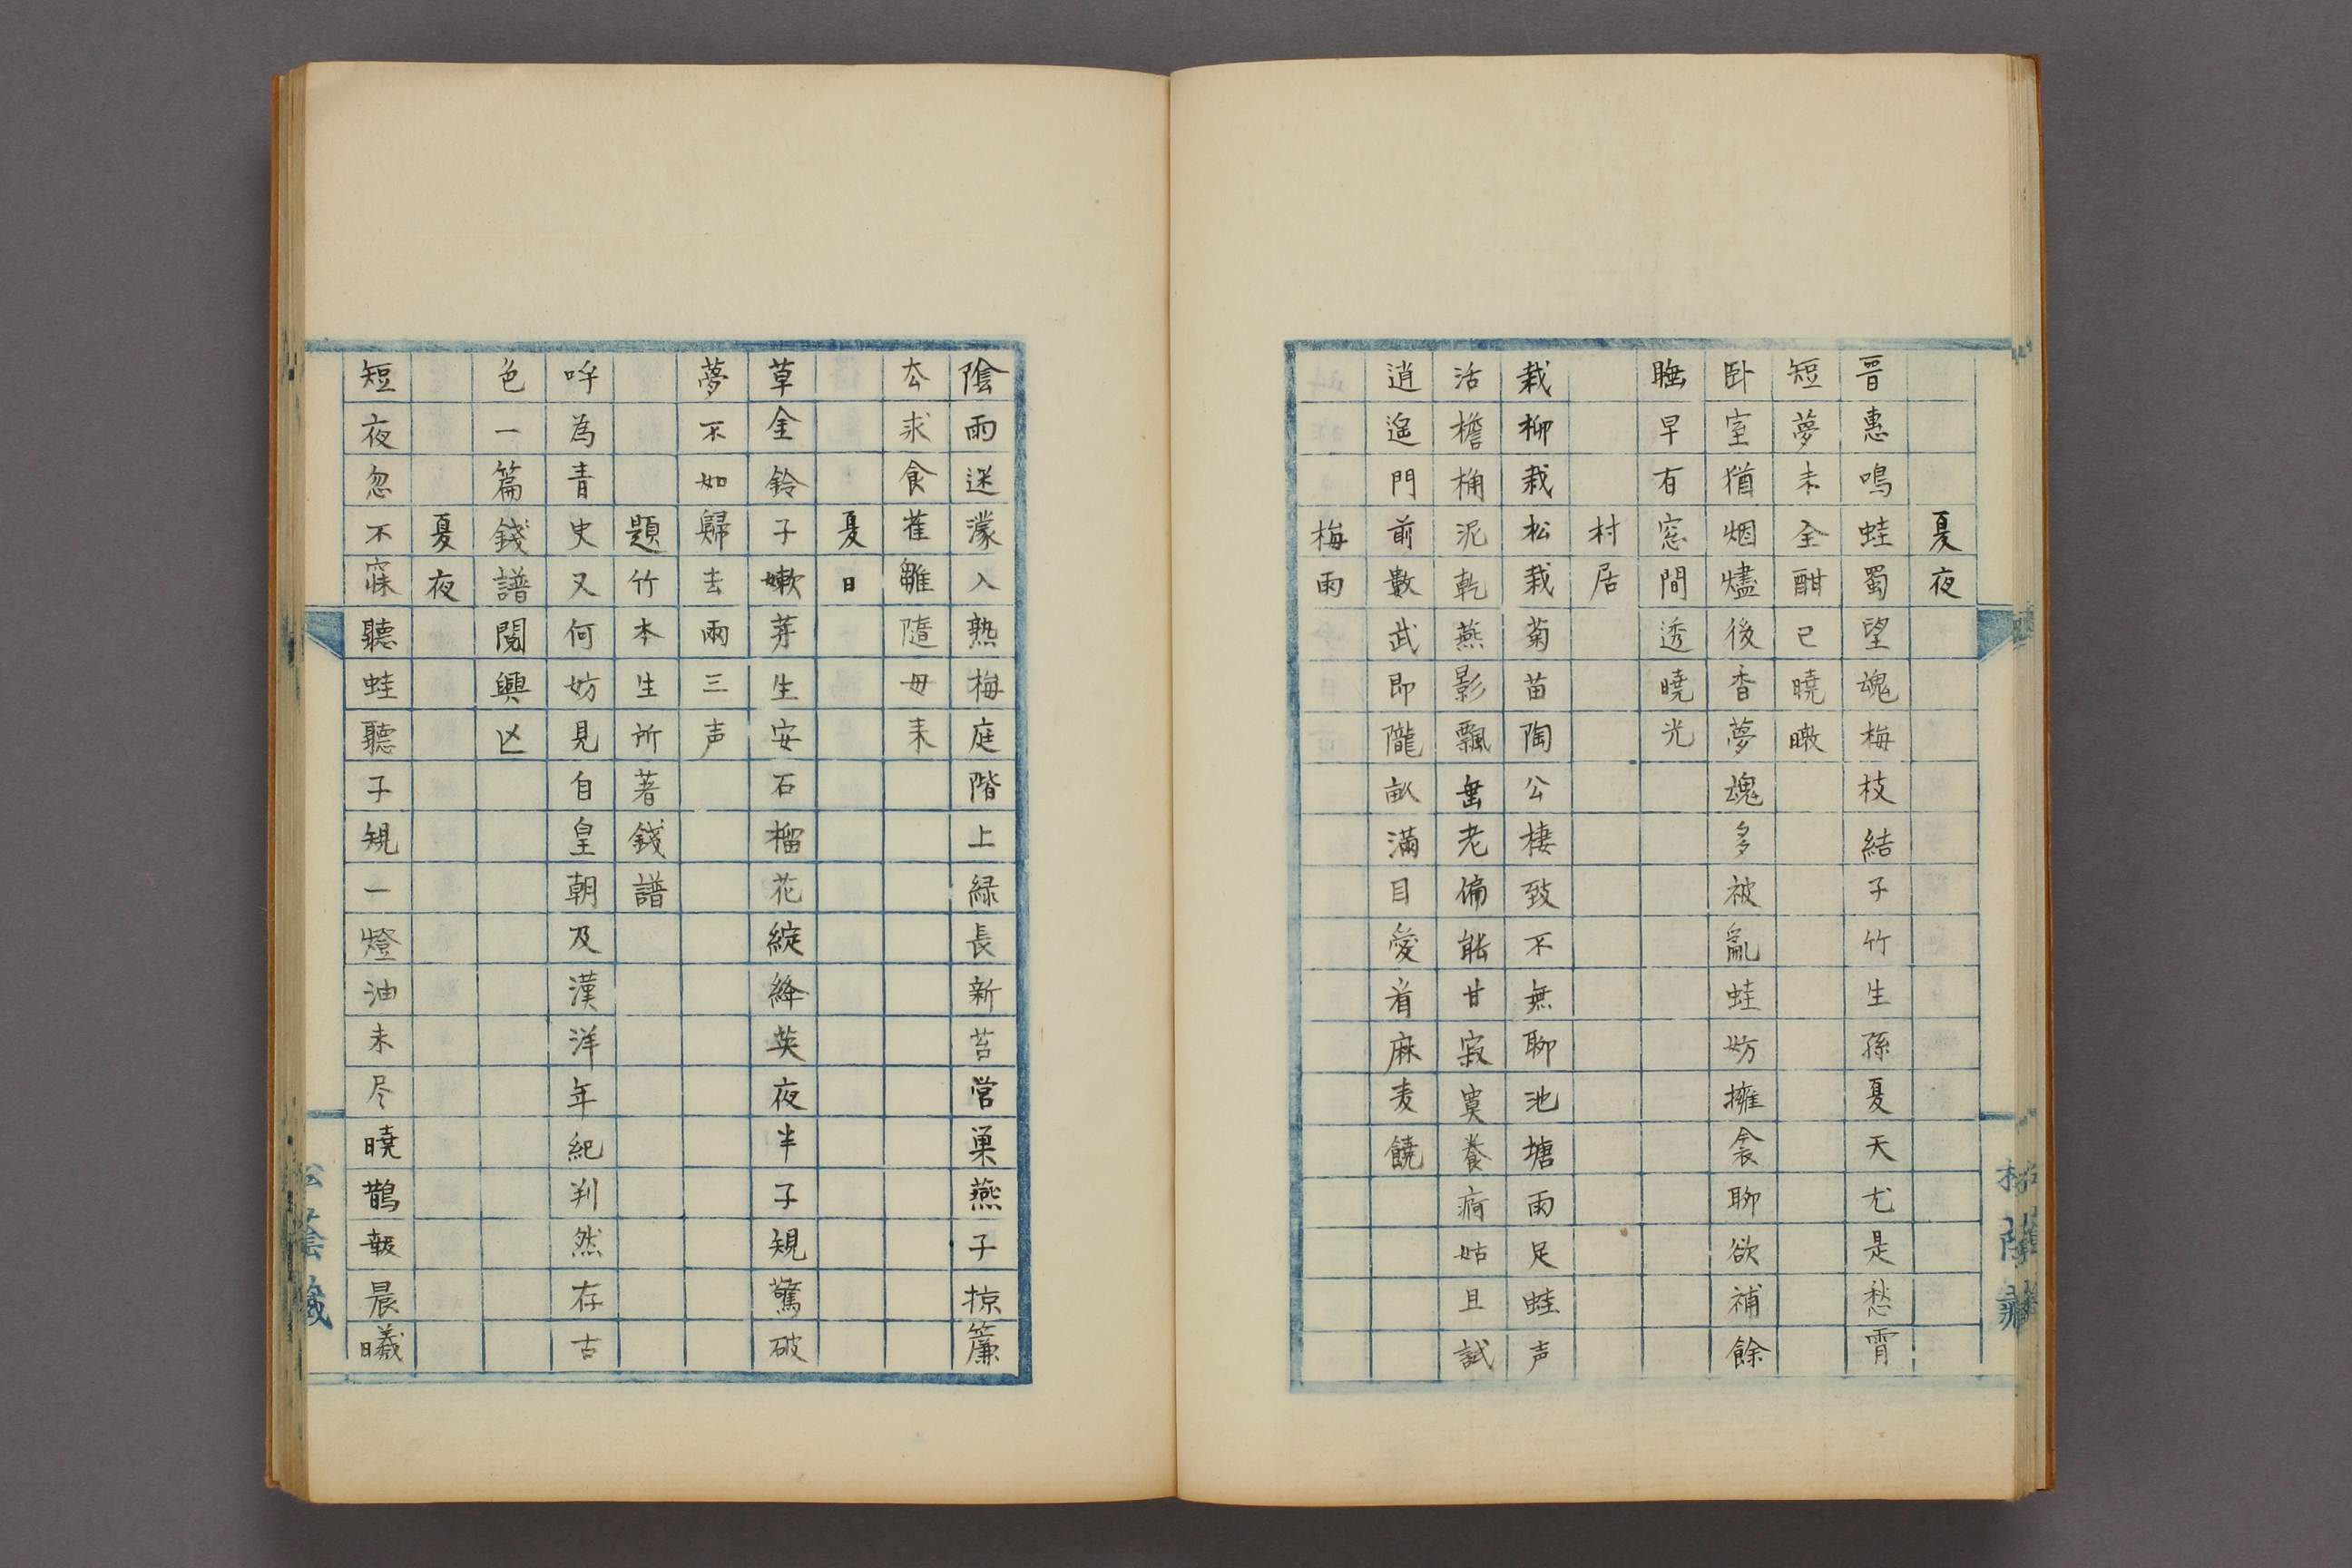 夏夜
晋惠鳴蛙蜀望魂梅枝結子竹生孫夏天尤是愁霄
短夢未全酣已曉暾
卧室猶烟燼後香夢魂多被亂蛙妨擁衾聊欲補餘
睡早有窓間透曉光
村居
栽柳栽松栽菊苗陶公棲致不無聊池塘雨足蛙声
活檐桷泥乾燕影飄耋老偏能甘寂寞養痾姑且試
逍遥門前數武即隴畝滿目愛看麻麦饒
梅雨
陰雨迷濛入熟梅庭階上緑長新苔営巣燕子掠簾
厺求食雀雛隨母来
夏日
草全鈴子嫰芽生安石榴花綻絳英夜半子規驚破
夢不如歸去兩三声
題竹本生所著錢譜
呼為青史又何妨見自皇朝及漢洋年紀判然存古
色一篇錢譜閲興亾
夏夜
短夜忽不寐聽蛙聽子規一燈油未尽曉鵲報晨曦